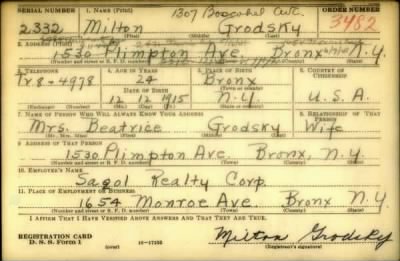 SERIAL NUMBER 1. NAME (Print) 1307 Boscobel Ave. ORDER NUMBER
2,332 Milton Grodsky 3482
(First) (Middle) (Last)
2. ADDRESS (Print)
1530 Plimpton Ave Bronx N.Y.
(Number and street or R. F. D. number) (Town) (County) (State)
3. TELEPHONE 4. AGE IN YEARS 5. PLACE OF BIRTH 6. COUNTRY OF CITIZENSHIP
Tr 8-4978 24 Bronx
DATE OF BIRTH
12 12 1915 N.Y. U.S.A.
(Exchange) (Number) (Mo.) (Day) (Yr.) (State or country)
7. NAME OF PERSON WHO WILL ALWAYS KNOW YOUR ADDRESS 8. RELATIONSHIP OF THAT PERSON
Mrs. Beatrice Grodsky Wife
(Mr., Mrs., Miss) (First) (Middle) (Last)
9. ADDRESS OF THAT PERSON
1530 Plimpton Ave. Bronx, N.Y.
(Number and street or R. F. D. number) (Town) (County) (State)
10. EMPLOYER'S NAME
Sagol Realty Corp.
11. PLACE OF EMPLOYMENT OR BUSINESS
1654 Monroe Ave. Bronx N.Y.
(Number and street or R. F. D. number) (Town) (County) (State)
I AFFIRM THAT I HAVE VERIFIED ABOVE ANSWERS AND THAT THEY ARE TRUE.
REGISTRATION CARD
D. S. S. Form 1 (over) 16-17105 Milton Grodsky
(Registrant's signature)